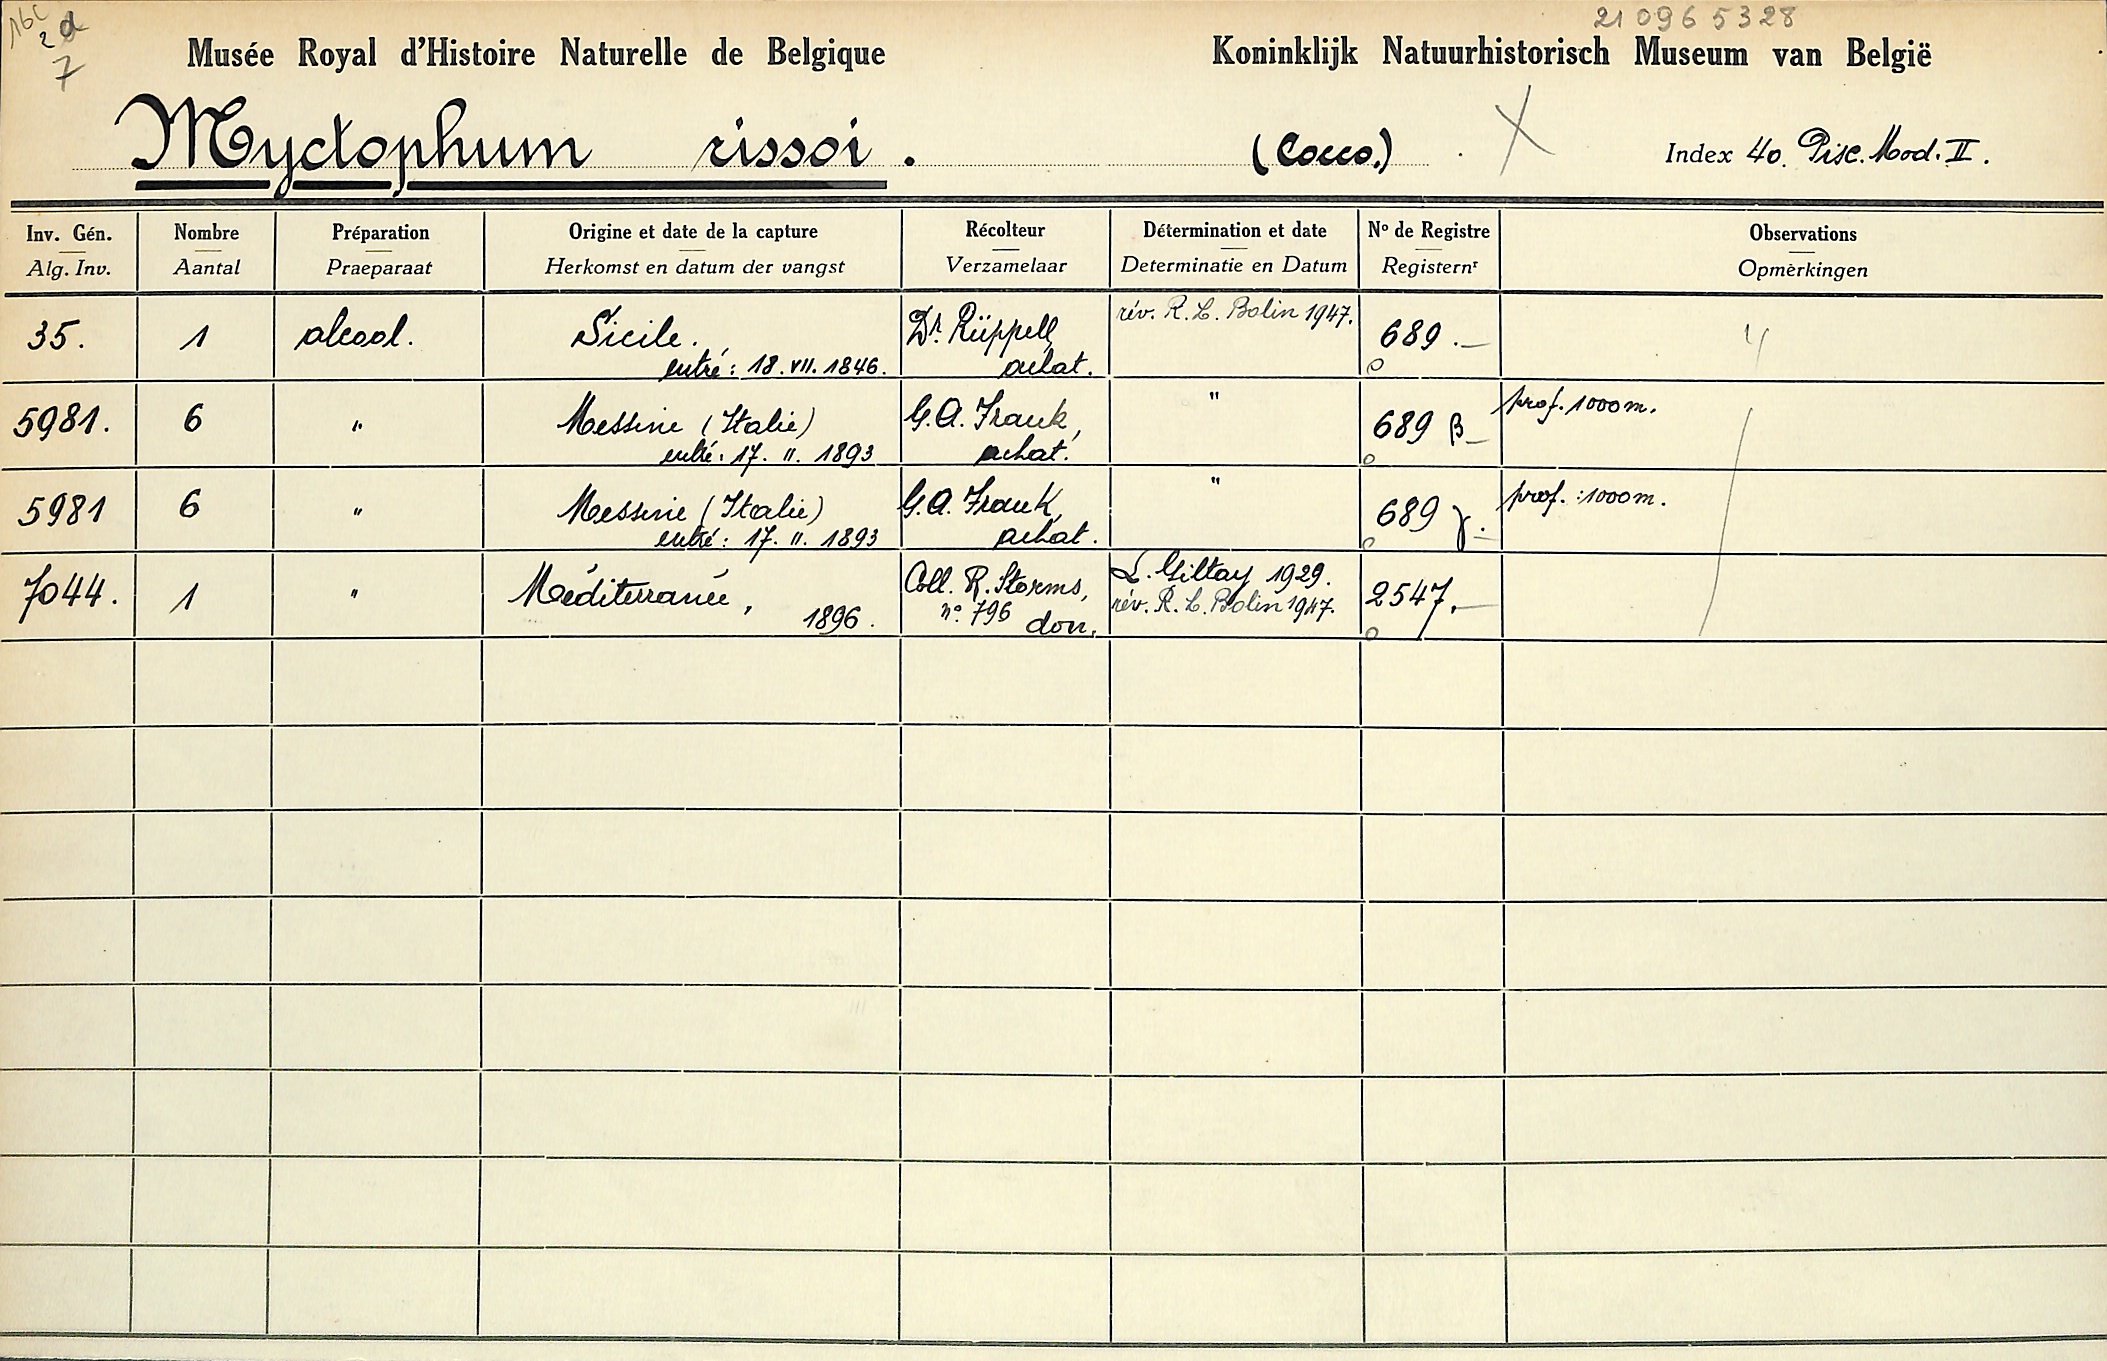 16c
2 d
7
21 096 5328
Musée Royal d'Histoire Naturelle de Belgique Koninklijk Natuurhistorisch Museum van België
Myctophum rissoi. (Cocco.) X Index 40. Pisc. Mod. II.
Inv. Gén. Nombre Préparation Origine et date de la capture Récolteur Détermination et date Nº de Registre Observations
Alg. Inv. Aantal Praeparaat Herkomst en datum der vangst Verzamelaar Determinatie en Datum Registernr Opmerkingen
35. 1 alcool. Sicile. Dr. Rüppell, rév. R. L. Bolin 1947. 689.—
entré: 18. VII. 1846. achat.
5981. 6 " Messine (Italie) G. A. Frank, " 689 β— prof. 1000 m.
entré: 17. II. 1893 achat.
5981 6 " Messine (Italie) G. A. Frank, " 689 γ.— prof.: 1000 m.
entré: 17. II. 1893 achat.
7044. 1 " Méditerranée, Coll. R. Storms, L. Giltay 1929. 2547.—
1896. nº 796 don. rév. R. L. Bolin 1947.